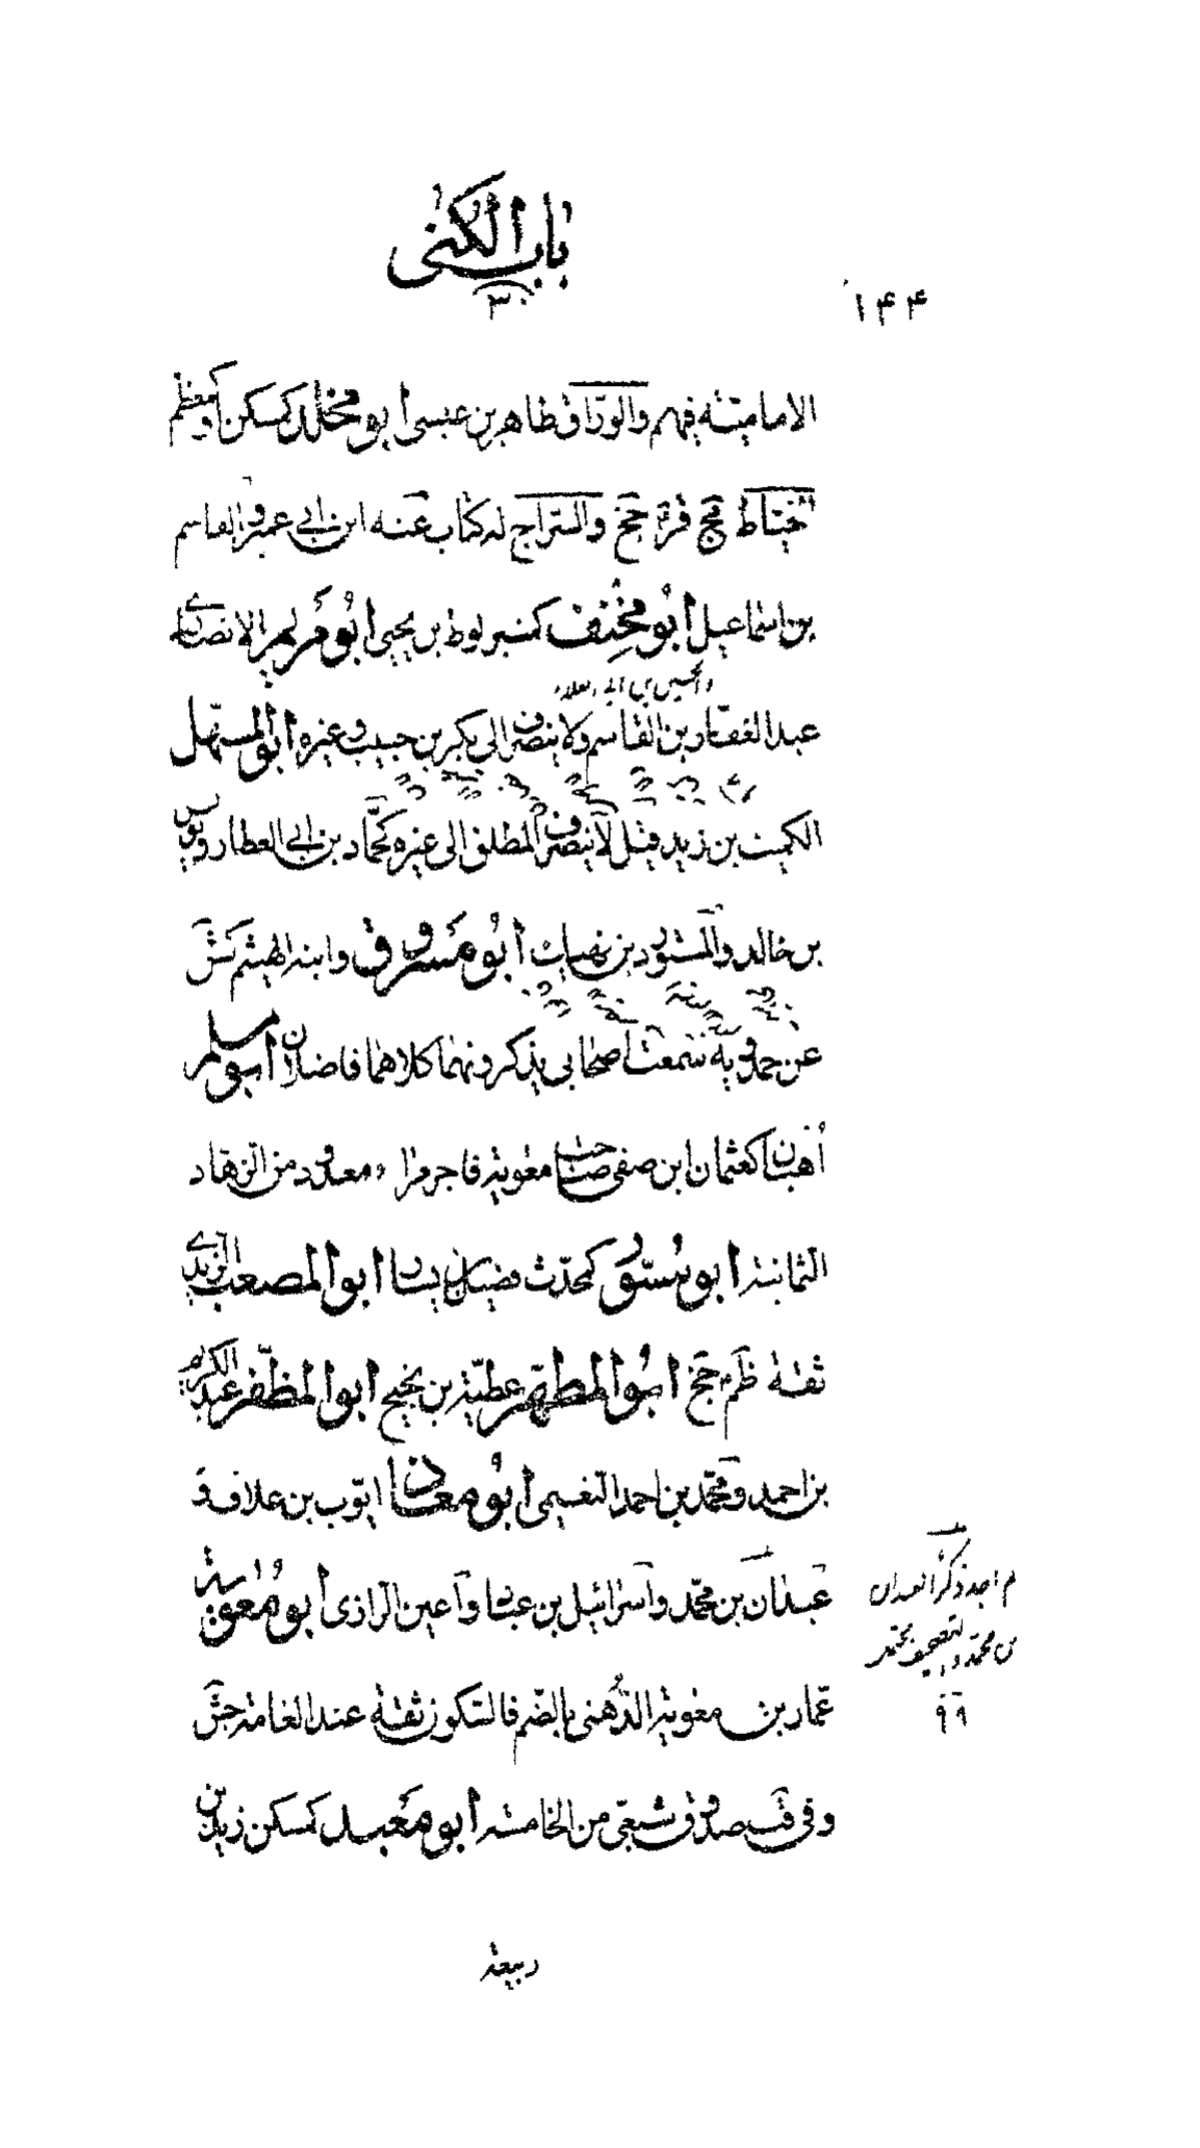 باب الكنى
٣
١٤٤
الاماميّة فيهم والورّاق طاهر بن عيسى ابو مخلد كمسكن او معظم
الخيّاط قرّ جخ والسّراج له كتاب عنه ابن ابى عمير والقاسم
بن اسماعيل ابو مخنف كمنبر لوط بن يحيى ابو مريم الانصارى
عبد الغفار بن القاسم ولا ينصرف الى بكر بن حبيب وغيره ابو المستهل
الكميت بن زيد قيل لا ينصرف المطلق الى غيره كحمّاد بن ابى العطار ويونس
بن خالد والمستورد بن نهيك ابو مسروق وابنه الهيثم كش
عن حمدويه سمعت اصحابى يذكرونهما كلاهما فاضلان ابو مسلم
اهبان كعثمان ابن صفى صاحب معوية فاجر مراء ومعدود من الزهاد
الثمانية ابو مسوّر كمحدّث فضيل بن يسار ابو المصعب الزيدى
ثقة ظم جخ ابو المطهّر عطيّة بن نجيح ابو المظفّر عبد الكريم
بن احمد ومحمّد بن احمد النعيمى ابو معاذ ايّوب بن علاق و
عبدان بن محمّد واسرائيل بن عباد واعين الرازى ابو معوية
عمّار بن معوية الدّهنى بالضّم فالسّكون ثقة عند العامة جش
وفى قب صدوق شيعّى من الخامسة ابو معبد كمسكن زيد بن
لم اجد ذكر العبدان
بن محمّد
ربيعة